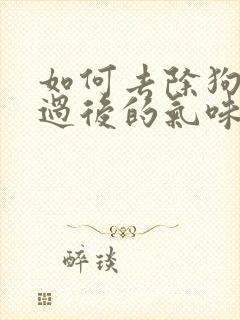 如何去除狗
過後的氣味
醉琰